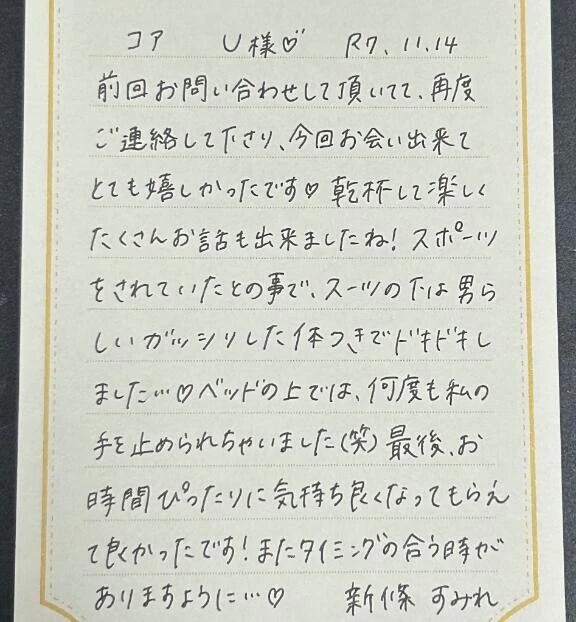 コア U様♡ R7.11.14
前回お問い合わせして頂いてて、再度
ご連絡して下さり、今回お会い出来て
とても嬉しかったです♡ 乾杯して楽しく
たくさんお話も出来ましたね！スポーツ
をされていたとの事で、スーツの下は男ら
しいガッシリした体つきでドキドキし
ました…♡ベッドの上では、何度も私の
手を止められちゃいました(笑) 最後、お
時間ぴったりに気持ち良くなってもらえ
て良かったです！またタイミングの合う時が
ありますように…♡ 新條 すみれ